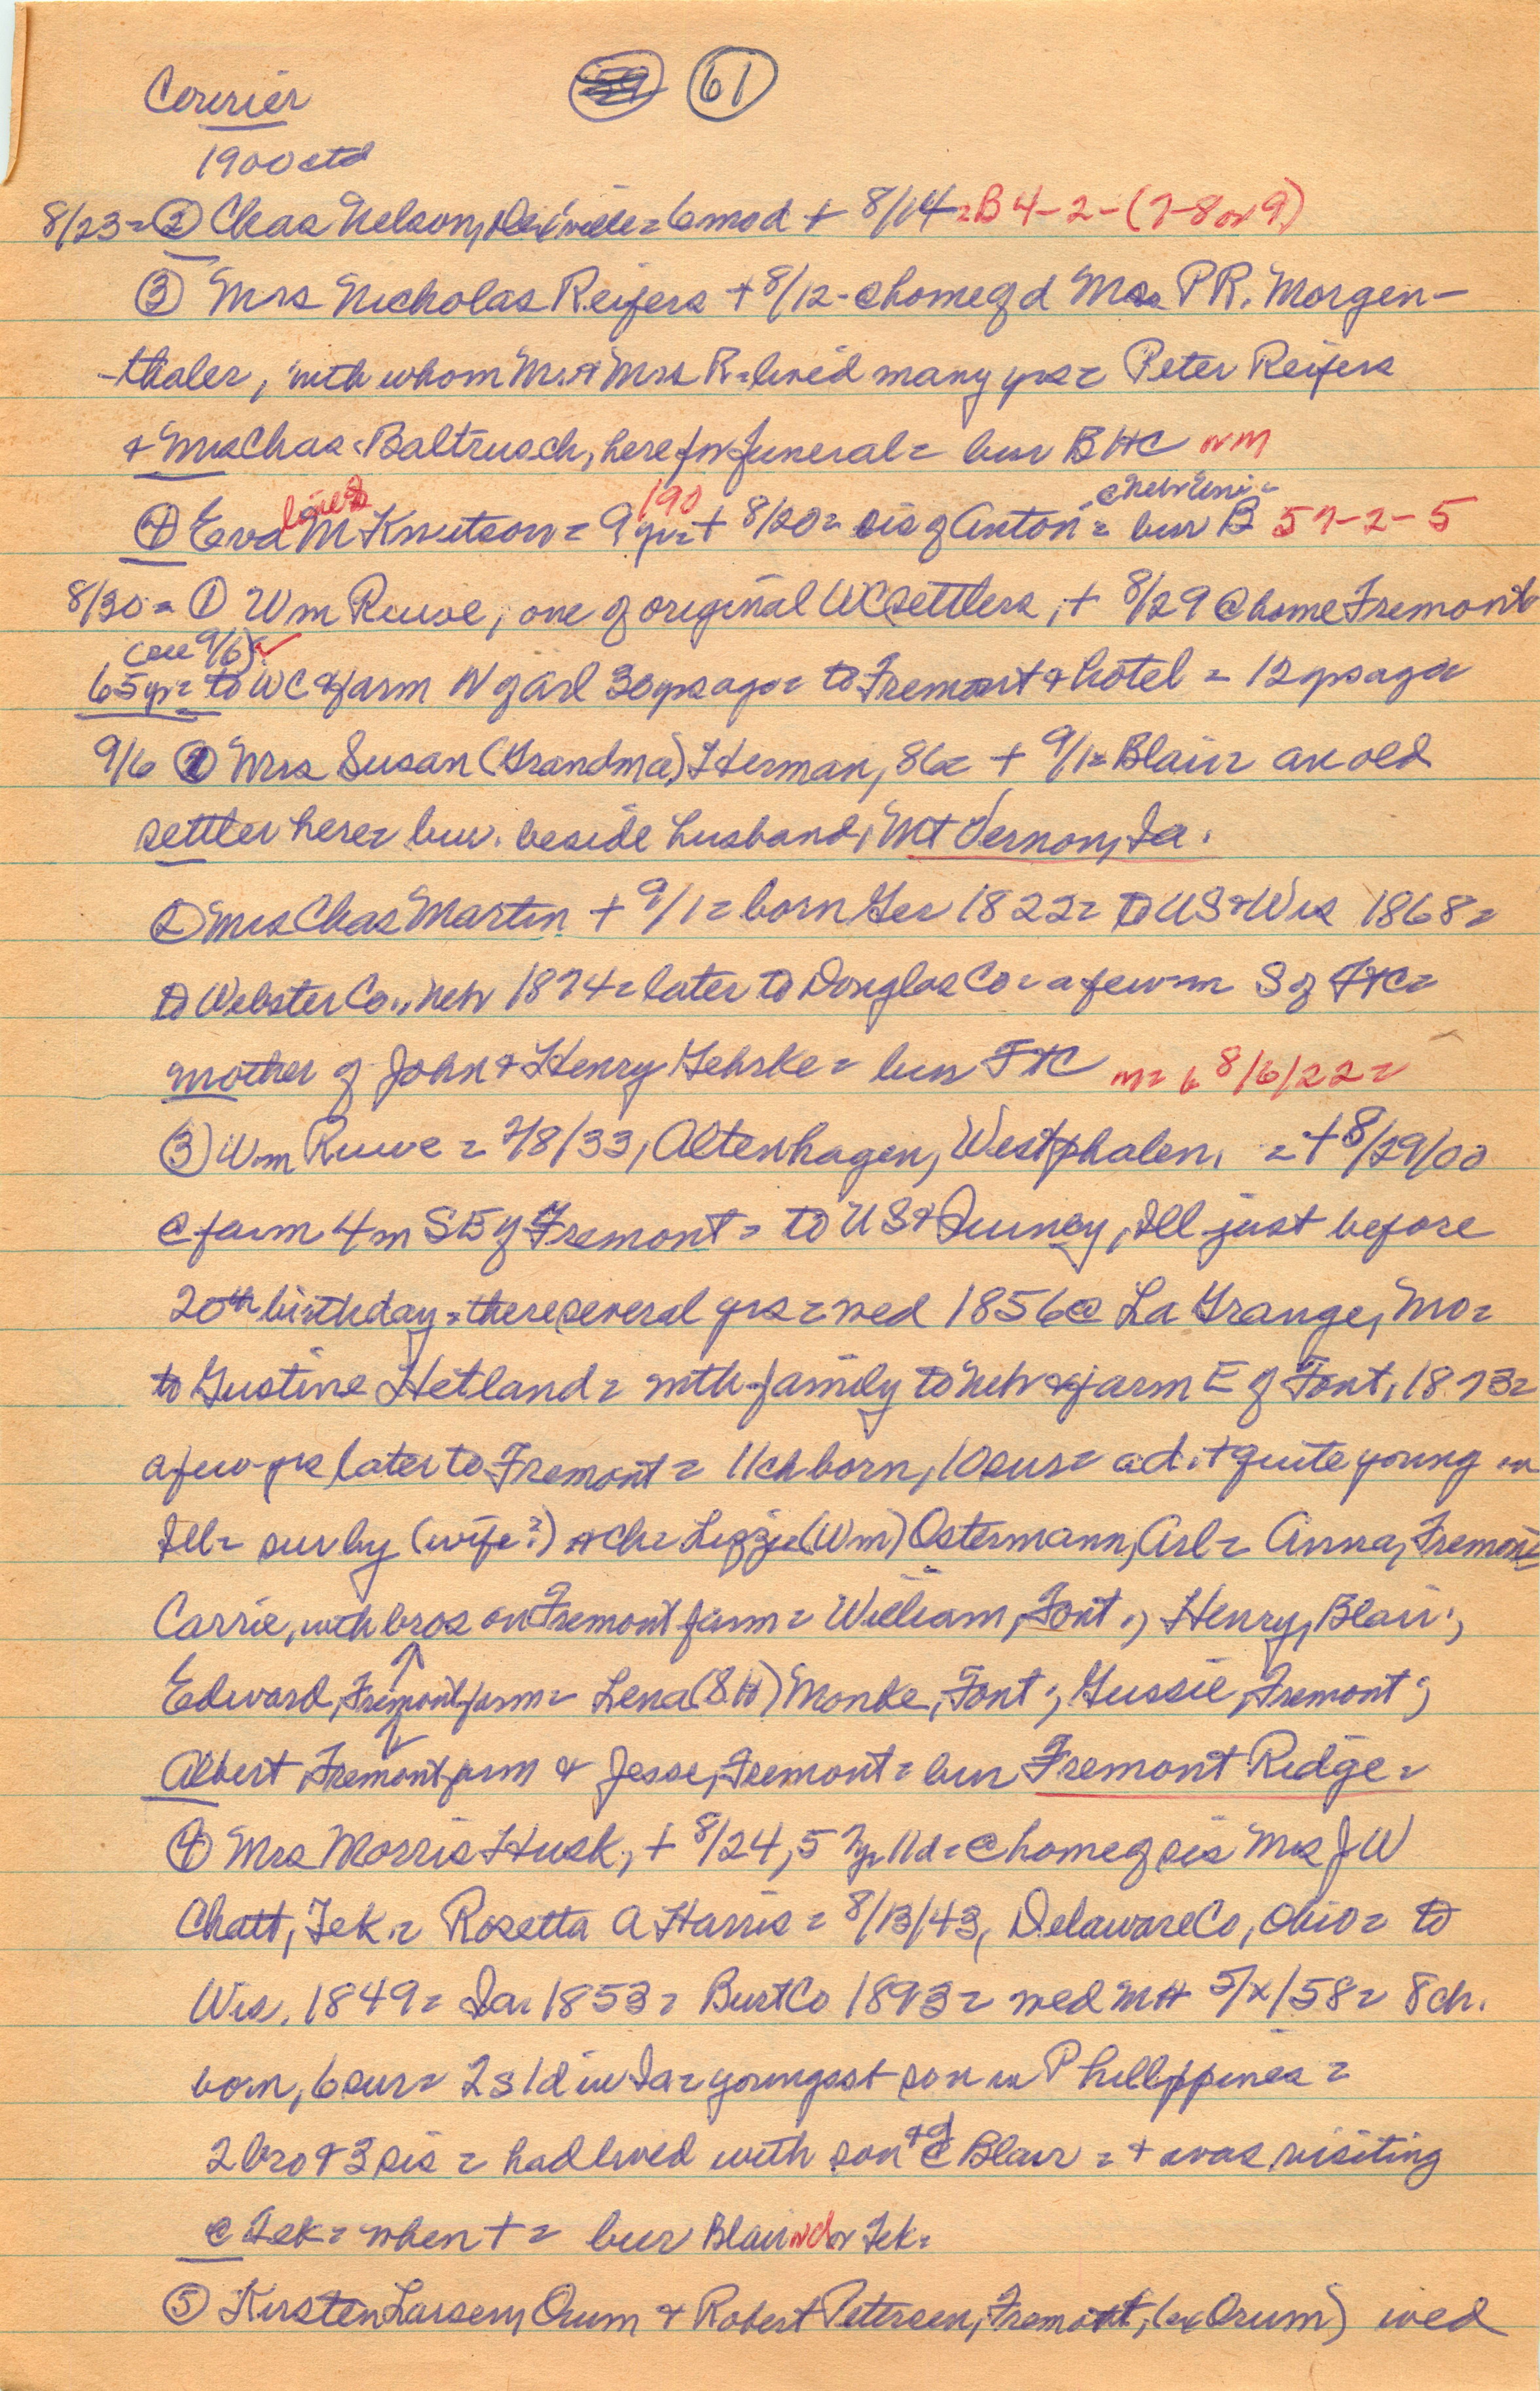 Courier
61
1900 ctd
8/23 = ② Chas Nelson, = 6 mo d + 8/14 = B 4-2-(7-8 or 9)
③ Mrs Nicholas Reifers + 8/12 - @ home of d Mrs PR. Morgen-
-thaler, with whom Mr & Mrs R = lived many yrs = Peter Reifers
& Mrs Chas. Baltrusch, here for funeral = bur BHC
@ Neb Uni =
④ Eva M Knutson = 9 yr = + 8/20 = sis of Anton = bur B 57-2-5
8/30 = ① Wm Ruwe, one of original WC settlers, + 8/29 @ home Fremont
(see 9/6) ✓
65 yr = to WC & farm N of Arl 30 yrs ago = to Fremont & hotel = 12 yrs ago
9/6 ① Mrs Susan (Grandma) Herman, 86 = + 9/1 = Blair = an old
settler here = bur. beside husband, Mt Vernon, Ia.
② Mrs Chas Martin + 9/1 = born Ger 1822 = to US & Wis 1868 =
to Webster Co., Neb 1874 = later to Douglas Co = a few m S of FtC =
mother of John & Henry Gehrke = bur FtC m = b 8/6/22 =
③ Wm Ruwe = 7/8/33, Altenhagen, Westphalen, = + 8/29/00
@ farm 4 m SE of Fremont = to US & Quincy, Ill just before
20th birthday = there several yrs = wed 1856 @ La Grange, Mo =
to Gustine Hetland = with family to Neb & farm E of Font, 1873 =
a few yrs later to Fremont = 11 ch born, 10 sur = a d. + quite young in
Ill = sur by (wife?) & ch = Lizzie (Wm) Ostermann, Arl = Anna, Fremont
Carrie, with bros on Fremont farm = William, Font.; Henry, Blair.;
Edward, Fremont farm = Lena (S.H) Monke, Font.; Gussie, Fremont;
Albert, Fremont farm & Jesse, Fremont = bur Fremont Ridge =
④ Mrs Morris Husk, + 8/24, 57 yr 11 d = @ home of sis Mrs JW
Chatt, Tek. = Rosetta A Harris = 8/13/43, Delaware Co, Ohio = to
Wis, 1849 = Ia. 1853 = Burt Co 1893 = wed MH 5/x/58 = 8 ch.
born, 6 sur = 2 s 1 d in Ia = youngest son in Phillippines =
2 bro & 3 sis = had lived with son & d @ Blair = + was visiting
@ Tek = when + = bur Blair or Tek =
⑤ Kirsten Larsen, Orum & Robert Petersen, Fremont, (ex Orum) wed